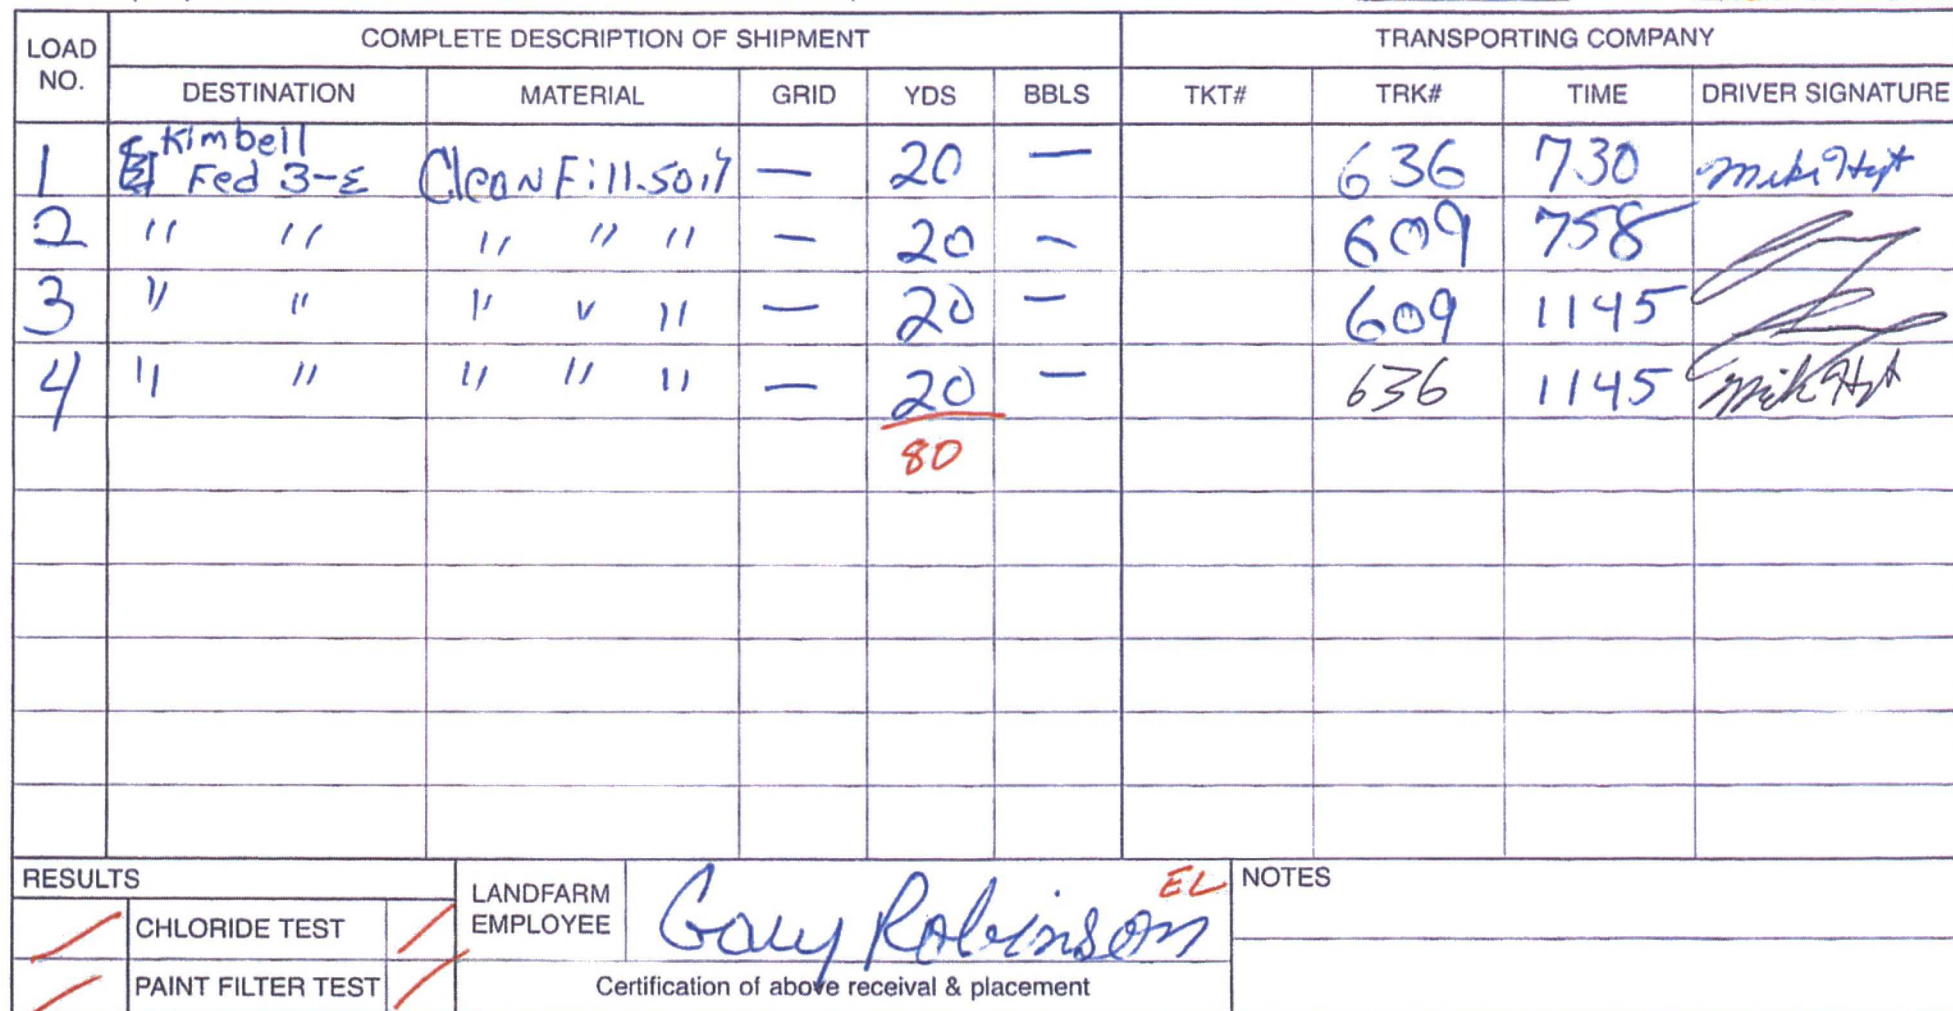 LOAD NO. COMPLETE DESCRIPTION OF SHIPMENT TRANSPORTING COMPANY
DESTINATION MATERIAL GRID YDS BBLS TKT# TRK# TIME DRIVER SIGNATURE
1 Kimbell Fed 3-E Clean Fill.soil — 20 — 636 730 Mike
2 " " " " " — 20 — 609 758
3 " " " " " — 20 — 609 1145
4 " " " " " — 20 — 636 1145 Mike
80
RESULTS
CHLORIDE TEST
PAINT FILTER TEST
LANDFARM EMPLOYEE Gary Robinson EL
Certification of above receival & placement
NOTES